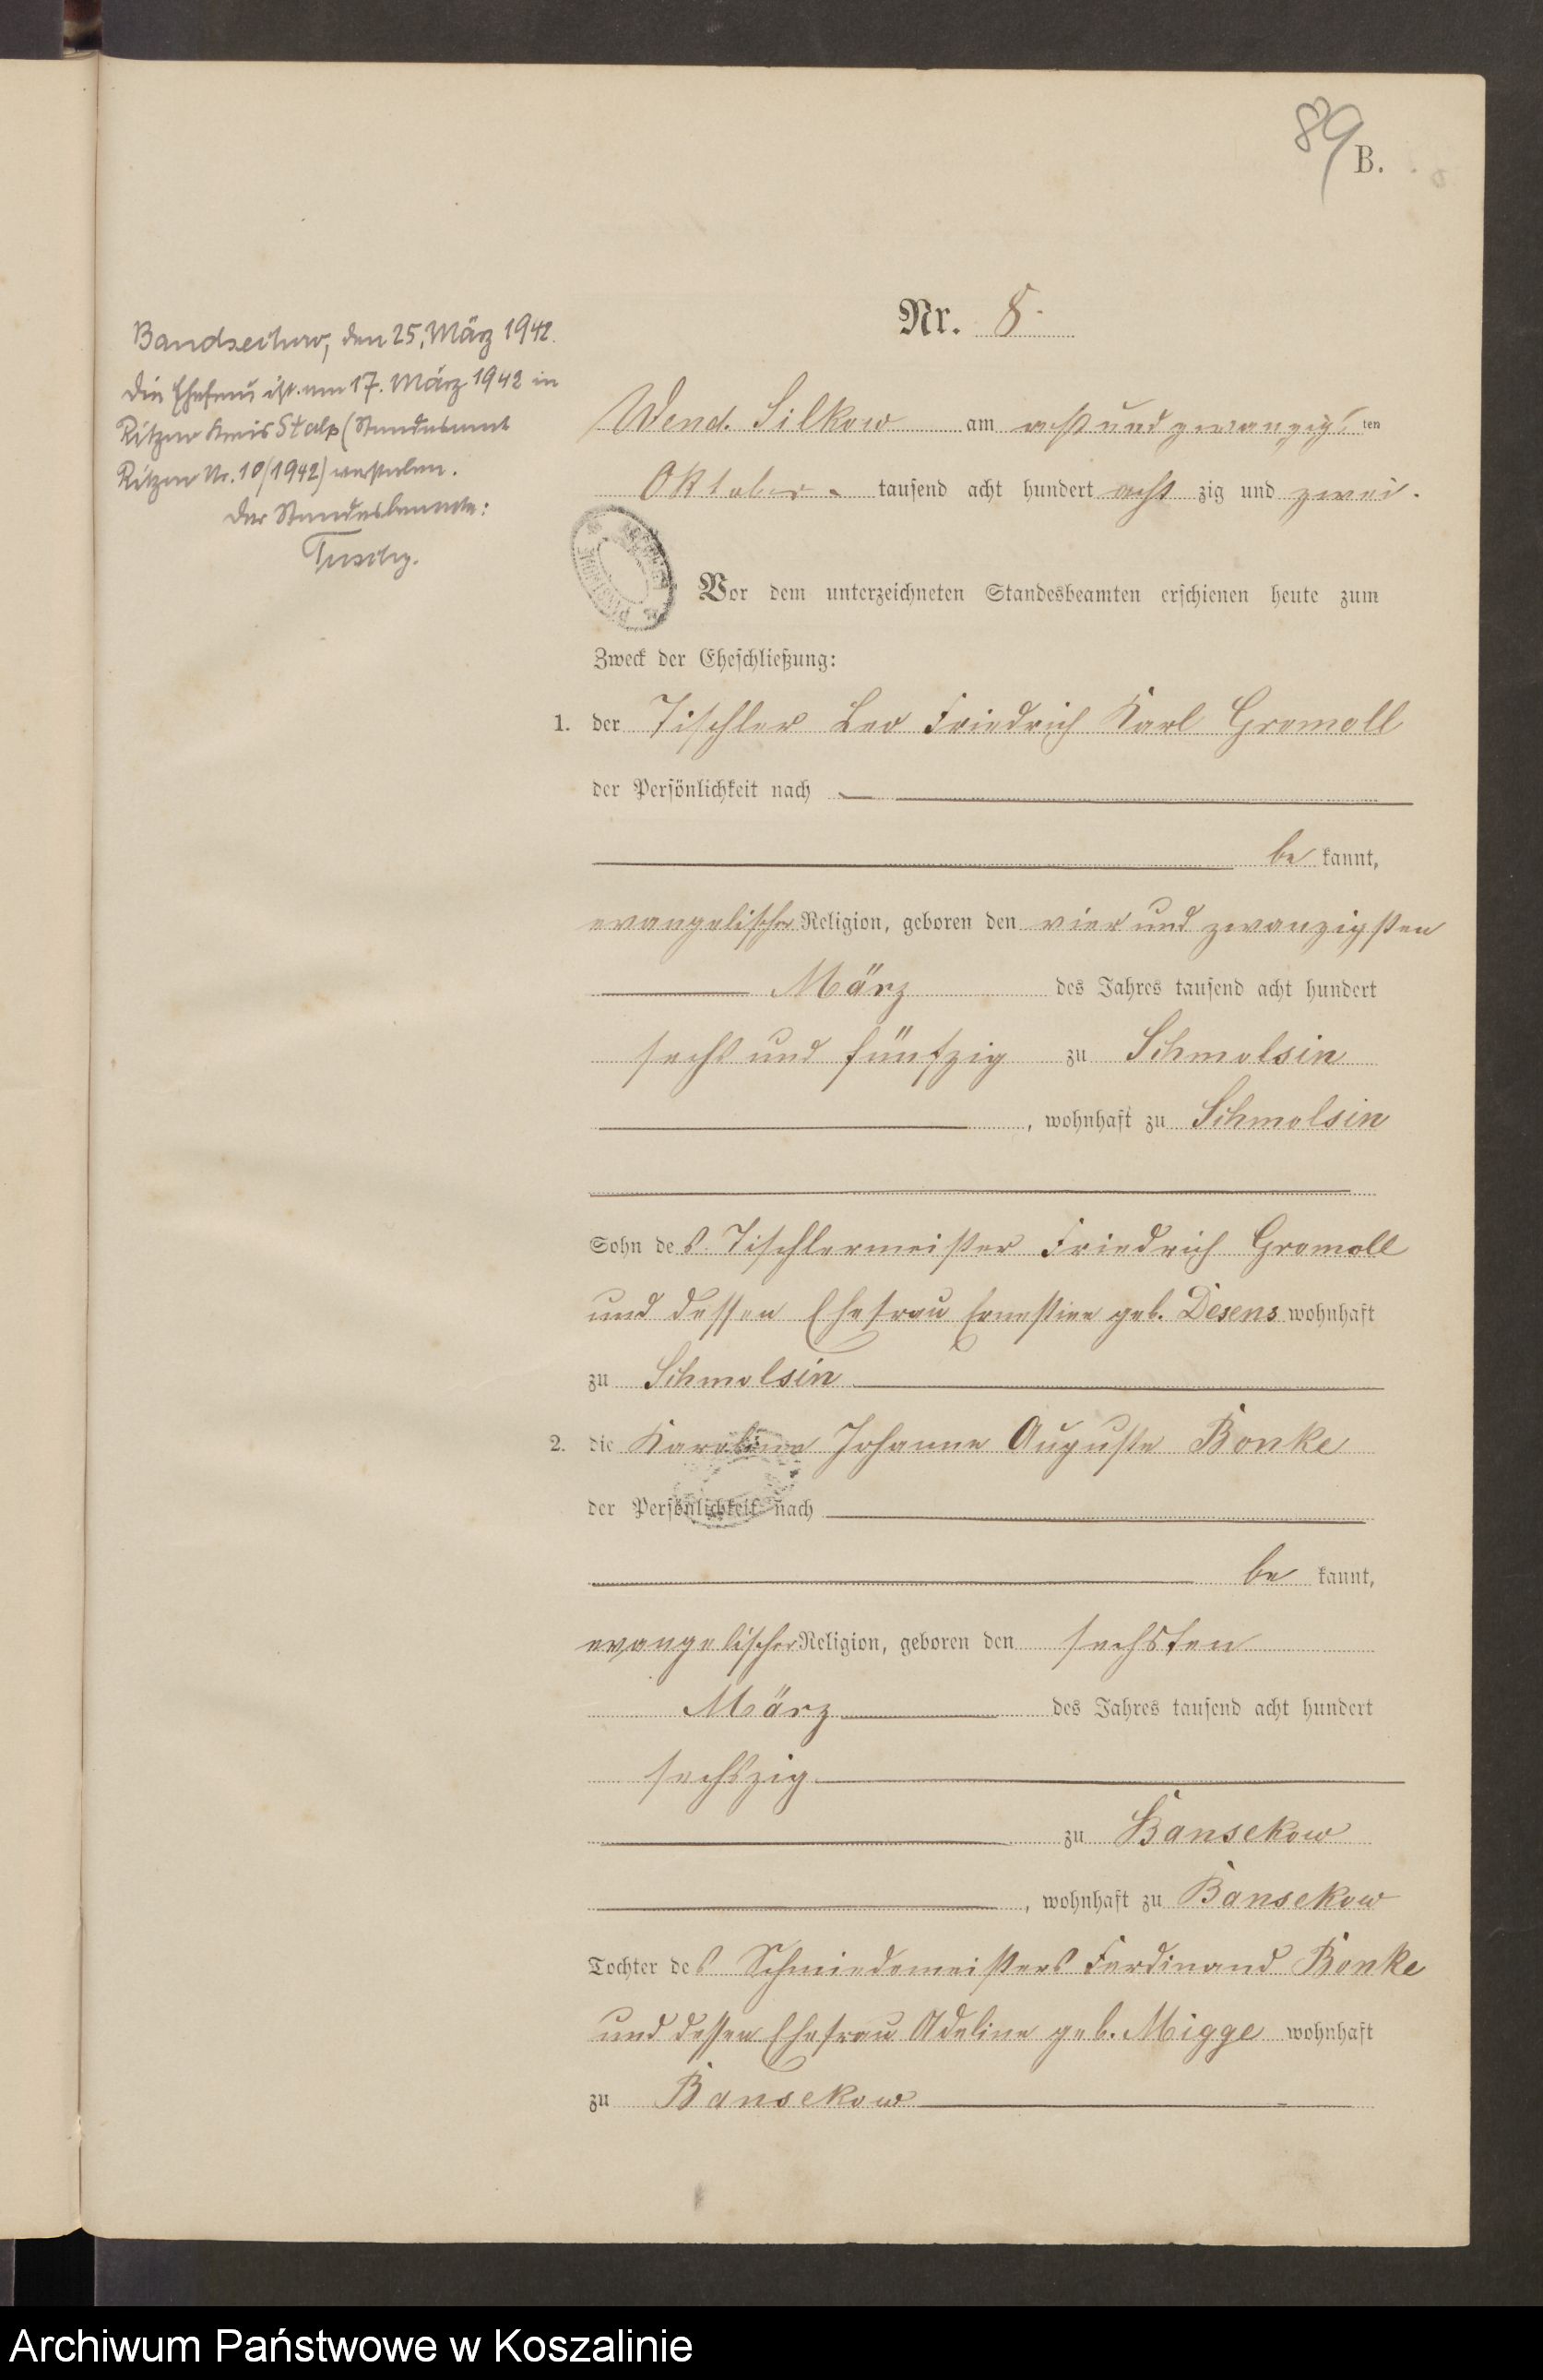 89
B.
Nr. 8.
Bandsechow, den 25. März 1942.
Die Ehefrau ist am 17. März 1942 in
Ritzow Kreis Stolp (Standesamt
Ritzow Nr. 10/1942) verstorben.
Der Standesbeamte:
Wend. Silkow am acht und zwanzigsten
Oktober tausend acht hundert acht zig und zwei.
Vor dem unterzeichneten Standesbeamten erschienen heute zum
Zweck der Eheschließung:
1. der Tischler Leo Friedrich Karl Gromoll
der Persönlichkeit nach
be kannt,
evangelischer Religion, geboren den vier und zwanzigsten
März des Jahres tausend acht hundert
sechs und fünfzig zu Schmolsin
, wohnhaft zu Schmolsin
Sohn des Tischlermeister Friedrich Gromoll
und dessen Ehefrau Ernestine geb. Desens wohnhaft
zu Schmolsin
2. die Karoline Johanne Auguste Bonke
der Persönlichkeit nach
be kannt,
evangelischer Religion, geboren den sechsten
März des Jahres tausend acht hundert
sechszig
zu Bansekow
, wohnhaft zu Bansekow
Tochter des Schmiedemeisters Ferdinand Bonke
und dessen Ehefrau Adeline geb. Migge wohnhaft
zu Bansekow
Archiwum Państwowe w Koszalinie